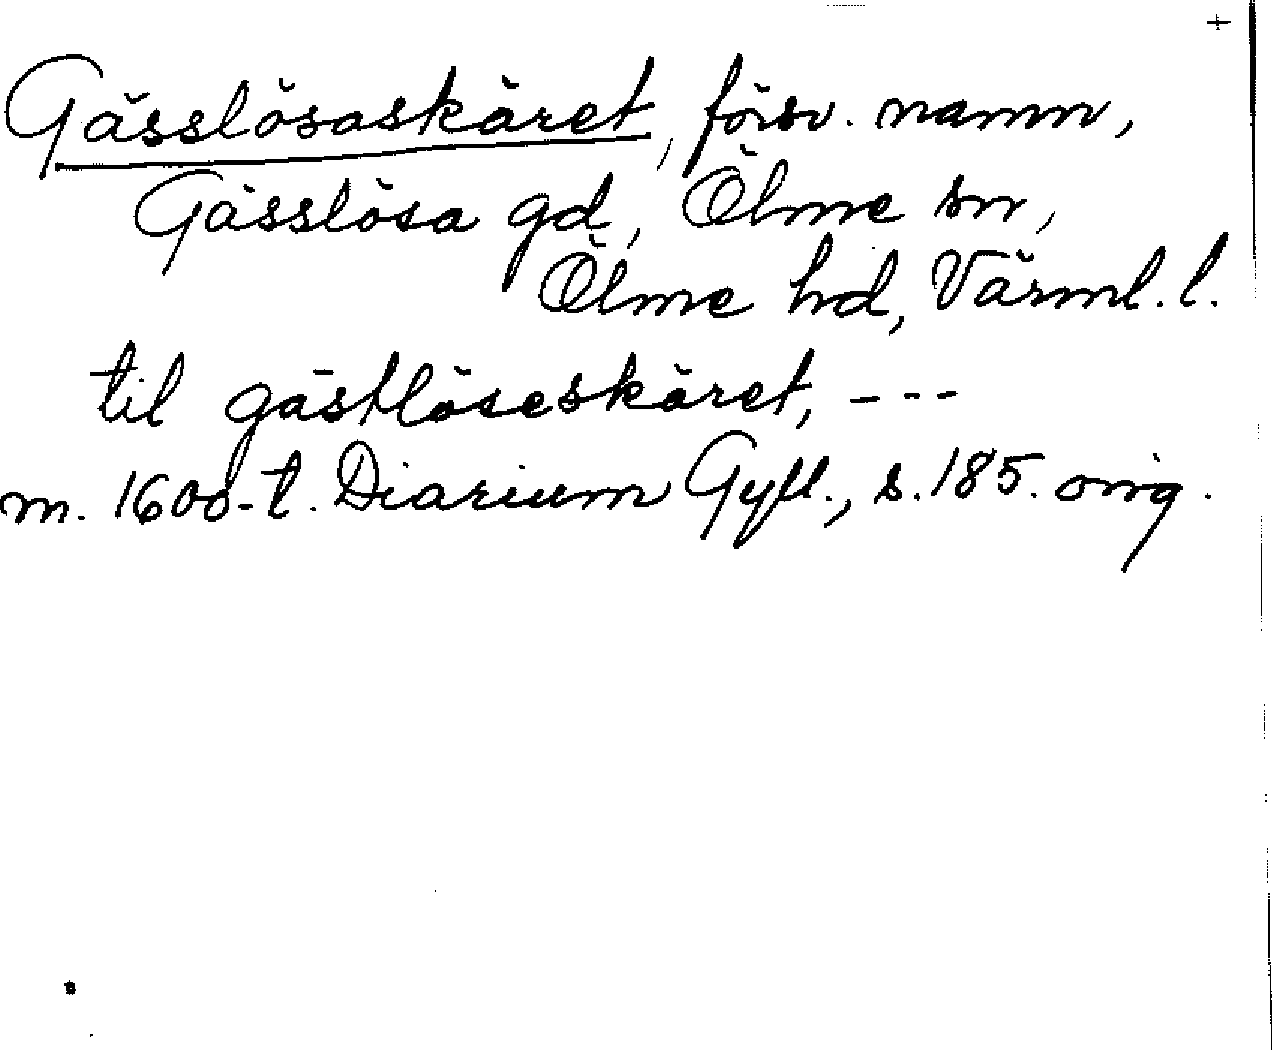 +
Gässlösaskäret, försv. namn,
Gässlösa gd, Ölme sn,
Ölme hd, Värml. l.
til gästlöseskäret, ---
m. 1600-t. Diarium Gyll., s. 185. orig.